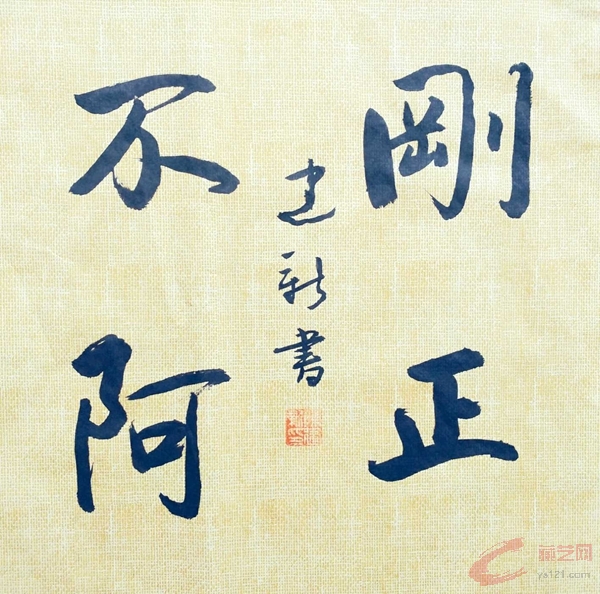 剛正
不阿
建新書
雅艺网
ya121.com